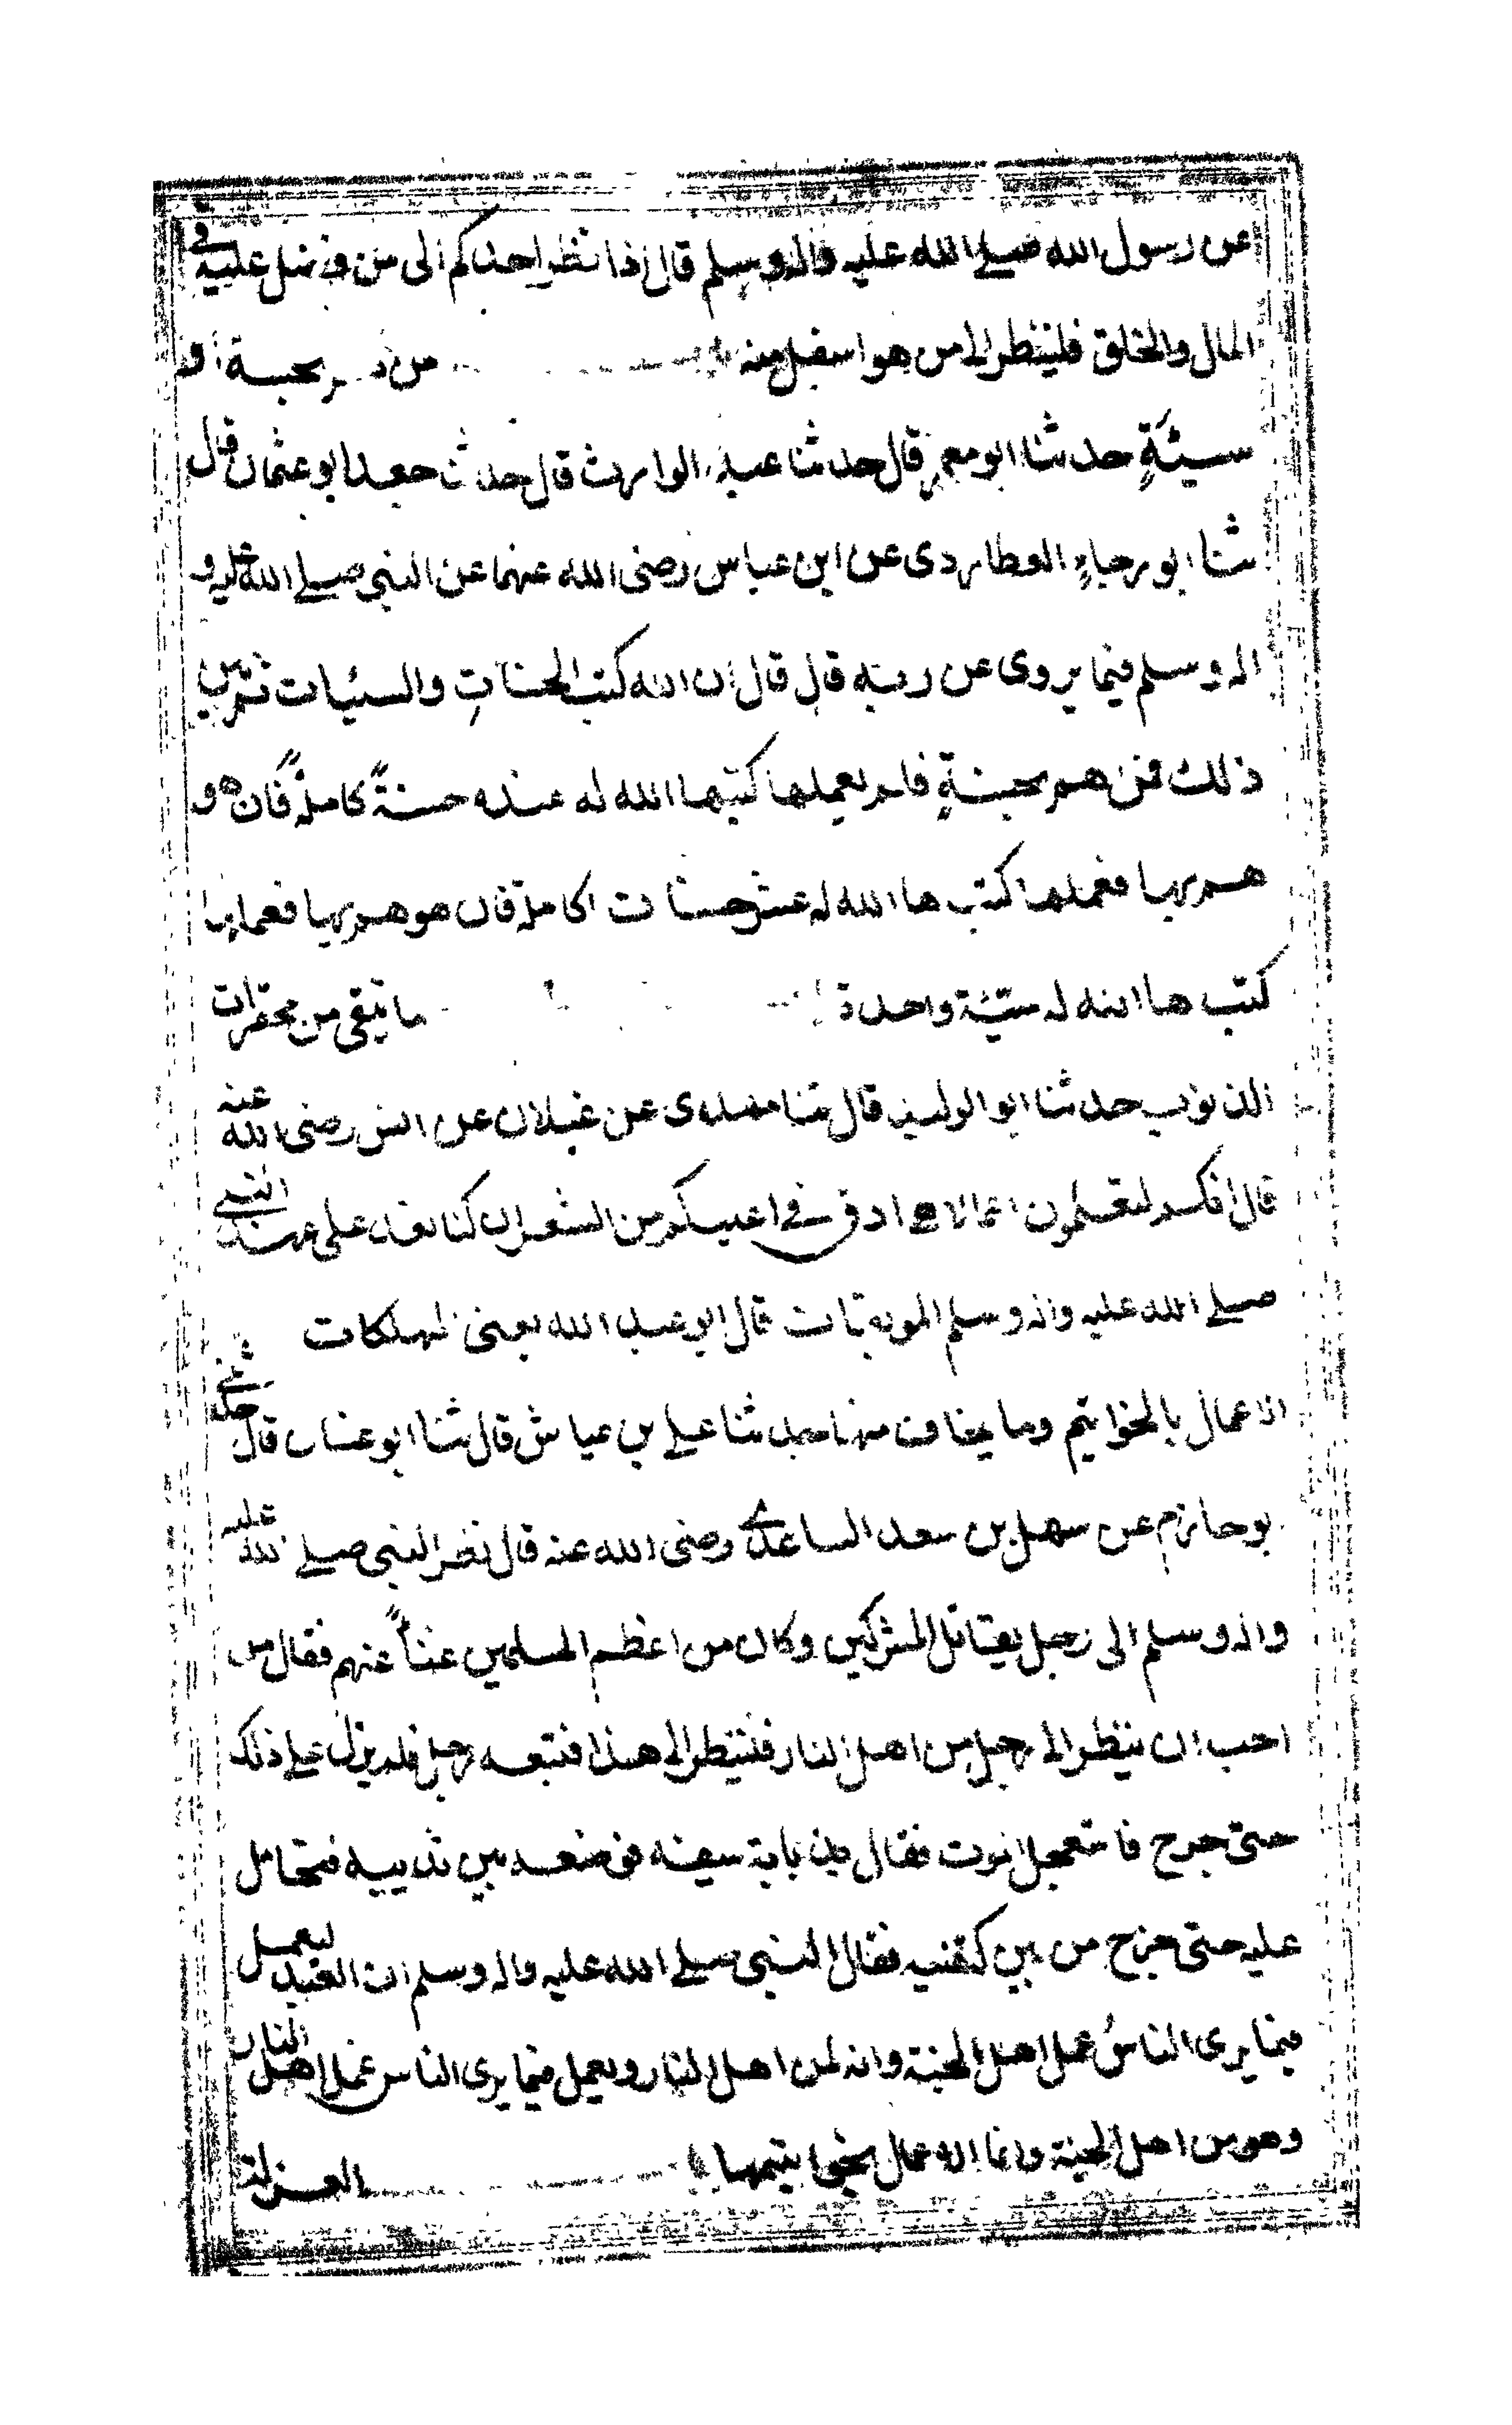 عن رسول الله صلى الله عليه واله وسلم قال اذا نظر احدكم الى من فضل عليه في
المال والخلق فلينظر الى من هو اسفل منه من هم بحسنة او
سيئةٍ حدثنا ابو معمر قال حدثنا عبد الوارث قال حدثنا جعد ابو عثمان قال
ثنا ابو رجاءٍ العطاردى عن ابن عباس رضى الله عنهما عن النبي صلى الله عليه و
اله وسلم فيما يروى عن ربه قال قال ان الله كتب الحسناتِ والسيئات ثم بين
ذلك فمن هم بحسنةٍ فلم يعملها كتبها الله له عنده حسنةً كاملةً فان هو
هم بها فعملها كتب ها الله له عشر حسنات كاملة فان هو هم بها فعملها
كتب ها الله له سيئة واحدة ما يتقى من محقرات
الذنوب حدثنا ابو الوليد قال ثنا مهدى عن غيلان عن انس رضى الله عنه
قال انكم لتعملون اعمالا هي ادق في اعينكم من الشعر ان كنا نعد على عهد النبي
صلى الله عليه واله وسلم الموبقات قال ابو عبد الله يعنى المهلكات
الاعمال بالخواتيم وما يخاف منها حدثنا علي بن عياش قال ثنا ابو غسان قال حدثني
بو حازم عن سهل بن سعد الساعدي رضى الله عنه قال نظر النبي صلى الله عليه
واله وسلم الى رجل يقاتل المشركين وكان من اعظم المسلمين غناً عنهم فقال من
احب ان ينظر الى رجل من اهل النار فلينظر الى هذا فتبعه رجل فلم يزل على ذلك
حتى جرح فاستعجل الموت فقال بذبابة سيفه فوضعه بين ثدييه فتحامل
عليه حتى خرج من بين كتفيه فقال النبي صلى الله عليه واله وسلم ان العبد ليعمل
فيما يرى الناسُ عمل اهل الجنة وانه لمن اهل النار ويعمل فيما يرى الناس عمل اهل النار
وهو من اهل الجنة وانما الاعمال بخواتيمها العزلة